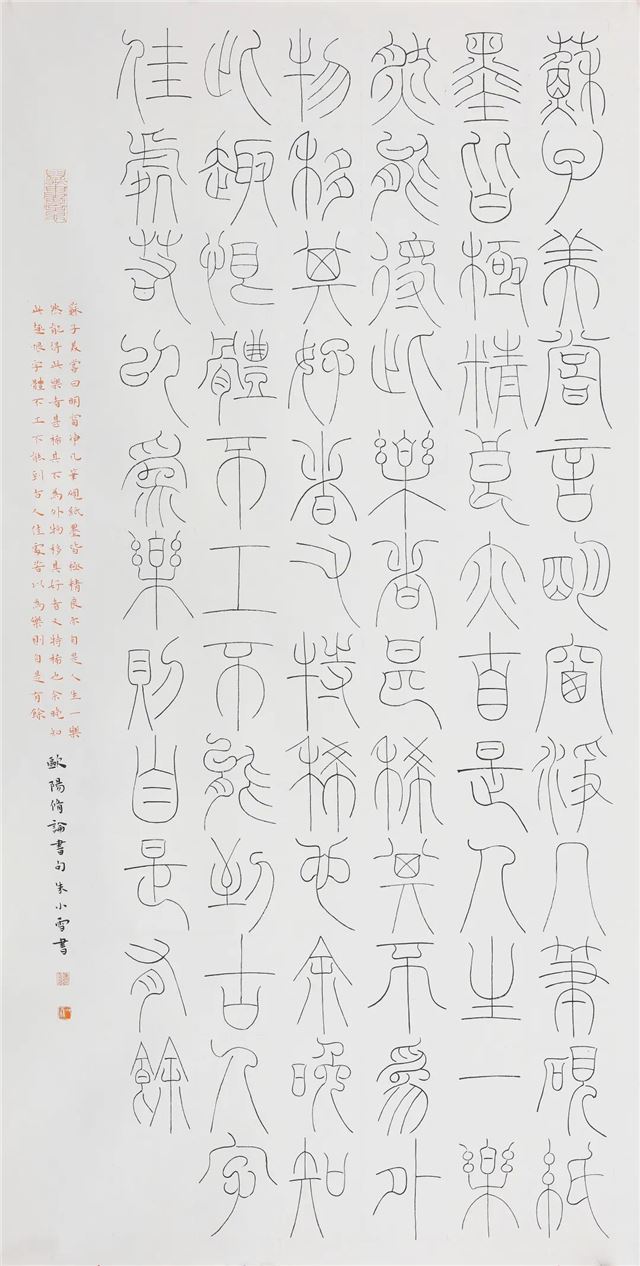 蘇子美嘗言明窗淨几筆硯紙
墨皆極精良亦自是人生一樂
然能得此樂者甚稀其不為外
物移其好者又特稀也余晚知
此趣恨體不工不能到古人字
佳處若以為樂則自是有餘
蘇子美嘗曰明窗淨几筆硯紙墨皆極精良亦自是人生一樂
然能得此樂者甚稀其不為外物移其好者又特稀也余晚知
此趣恨字體不工不能到古人佳處若以為樂則自是有餘
歐陽脩論書句朱小雪書